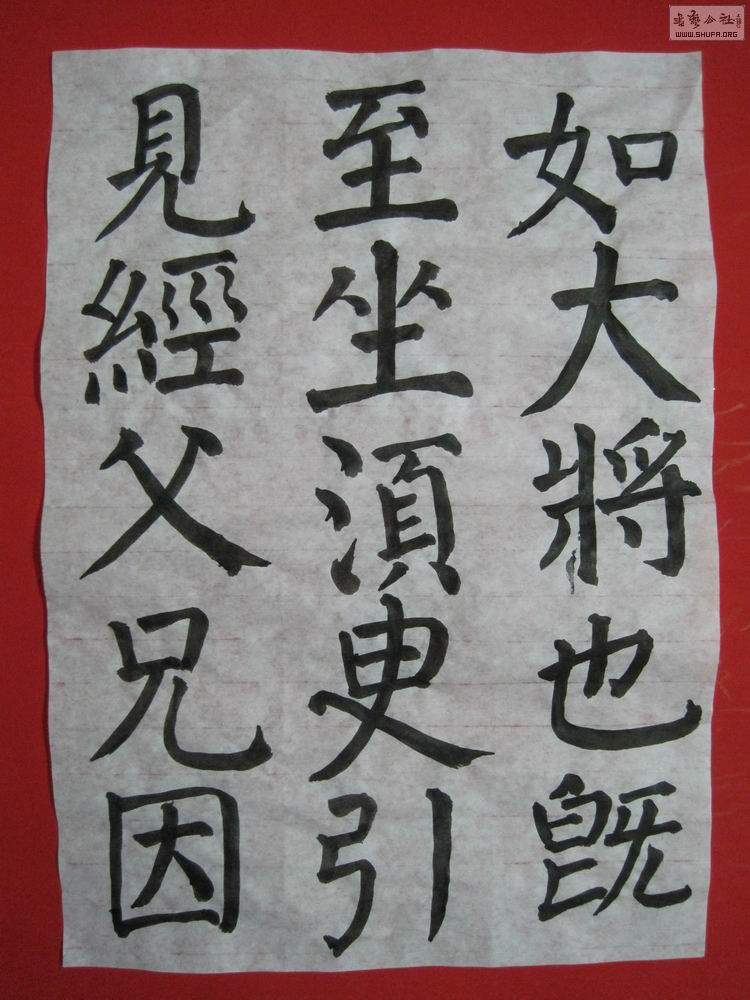 如大將也既
至坐湏臾引
見經父兄因
書藝公社
WWW.SHUFA.ORG